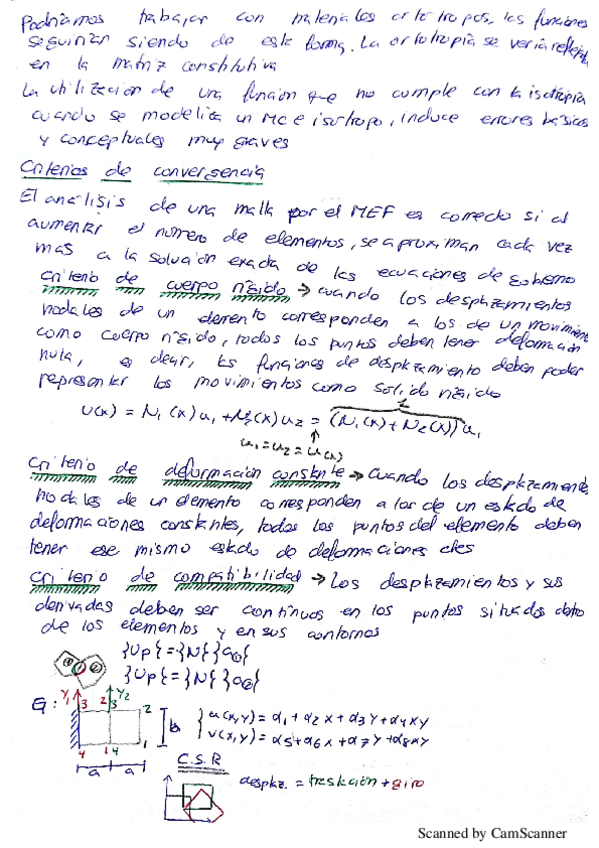 Podriamos trabajar con materiales ortotropos, las funciones
seguirian siendo de esta forma. La ortotropia se veria reflejada
en la matriz constitutiva
La utilización de una función que no cumple con la isotropia
cuando se modeliza un MC e isotropo, induce errores basicos
y conceptuales muy graves
Criterios de convergencia
El análisis de una malla por el MEF es correcto si al
aumentar el número de elementos, se aproximan cada vez
mas a la solución exacta de las ecuaciones de gobierno
criterio de cuerpo rígido → cuando los desplazamientos
nodales de un elemento corresponden a los de un movimiento
como cuerpo rígido, todos los puntos deben tener deformación
nula, es decir, las funciones de desplazamiento deben poder
representar los movimientos como solido rígido
1
u(x) = N₁(x)u₁ + N₂(x)u₂ = (N₁(x)+N₂(x))u₁
u₁=u₂=u(x)
criterio de deformación constante → Cuando los desplazamientos
nodales de un elemento corresponden a los de un estado de
deformaciones constantes, todos los puntos del elemento deben
tener ese mismo estado de deformaciones ctes
criterio de compatibilidad → Los desplazamientos y sus
derivadas deben ser continuos en los puntos situados dntro
de los elementos y en sus contornos
① ②
{Up}={N}{a①}
{Up}={N}{a②}
Ej: Y₁ 3 2 3 Y₂ 2
4 1 4 1 b
a a
{ u(x,y) = α₁ + α₂x + α₃y + α₄xy
v(x,y) = α₅+α₆x + α₇y + α₈xy
C.S.R
desplaz. = traslación + giro
Scanned by CamScanner